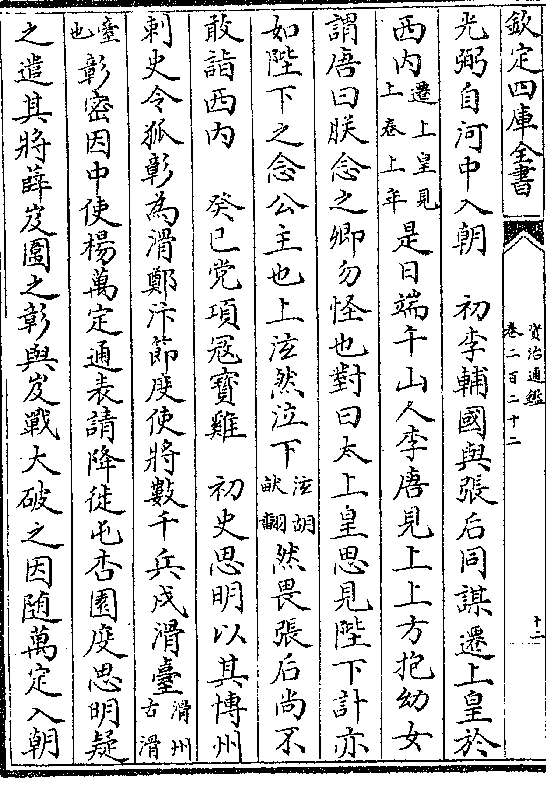 欽定四庫全書
資治通鑑
卷二百二十二
十二
光弼自河中入朝　初李輔國與張后同謀遷上皇於
西内遷上皇見上卷上年是日端午山人李唐見上上方抱幼女
謂唐曰朕念之卿勿怪也對曰太上皇思見陛下計亦
如陛下之念公主也上泫然泣下泫胡畎翻然畏張后尚不
敢詣西内　癸巳党項冦寳雞　初史思明以其博州
刺史令狐彰為滑鄭汴節度使將數千兵戍滑臺滑州古滑
臺也彰密因中使楊萬定通表請降徙屯杏園度思明疑
之遣其將薛岌圍之彰與岌戰大破之因随萬定入朝